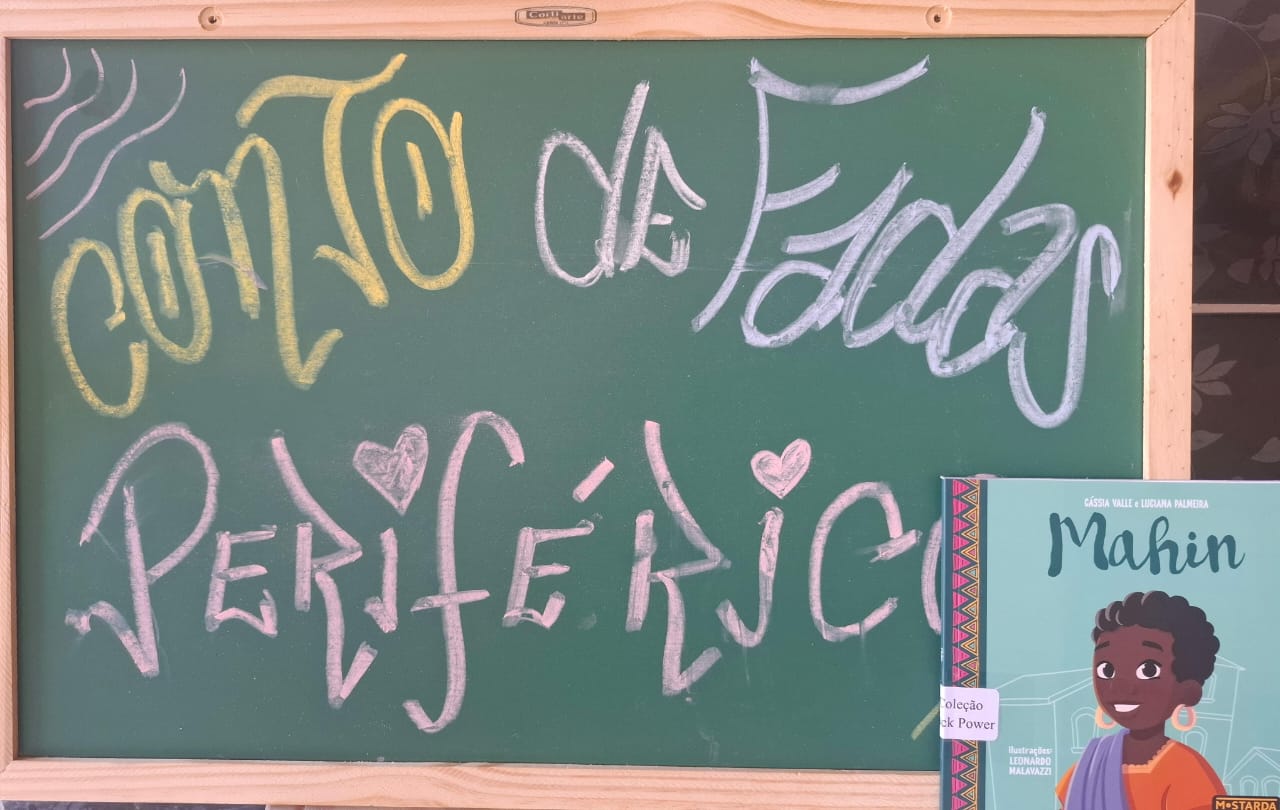 Corti arte
CONTO de Fadas
PERIFÉRIC
CÁSSIA VALLE e LUCIANA PALMEIRA
Mahin
Coleção
ck Power
Ilustrações:
LEONARDO
MALAVAZZI
MOSTARDA